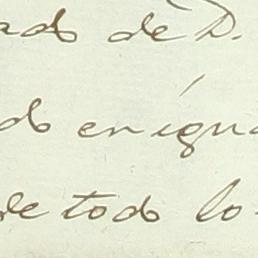 ado de D.
do en igua
de todo lo